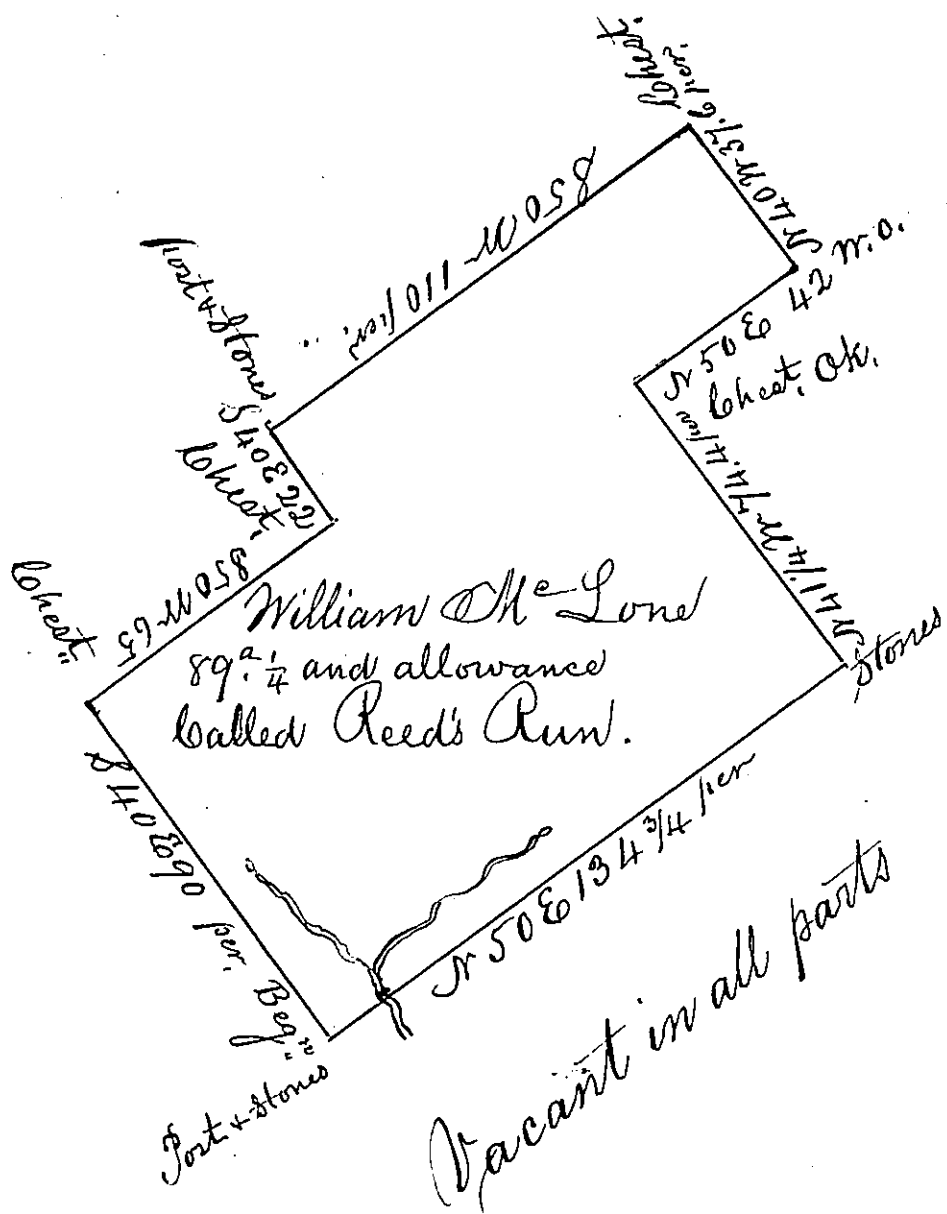 Chest.
N 40 W 37.6 per.
S 50 W 110 per.
N 50 E 42 W.O.
Chest. Ok.
Post & Stones
S 40 E 22
Chest.
N 41 1/4 W 74.4 per
S 50 W 65
Chest.
William Mc Lone
89a. 1/4 and allowance
Called Reed's Run.
Stones
S 40 E 90 per. Begn
N 50 E 134 3/4 per
Post & Stones
Vacant in all parts